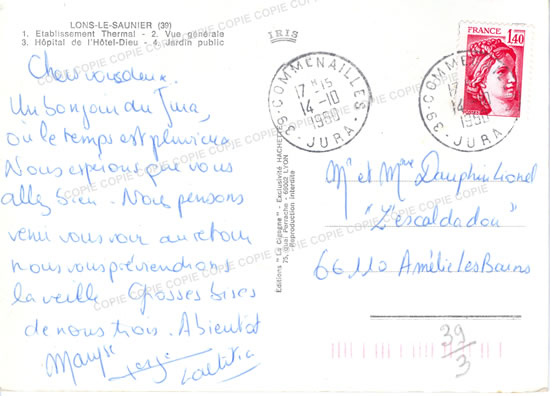 LONS-LE-SAUNIER (39)
1. Etablissement Thermal - 2. Vue générale
3. Hôpital de l'Hôtel-Dieu - 4. Jardin public
IRIS
Chers vous deux.
Un bonjour du Jura,
où le temps est pluvieux
Nous espérons que vous
allez bien. Nous pensons
venir vous voir au retour
nous vous préviendrons
la veille Grosses bises
de nous trois. A bientôt
Maryse
Laetitia
Editions "La Cigogne" - Exclusivité HACHETTE
75, Quai Perrache - 69002 LYON
Reproduction interdite
39 - COMMENAILLES
17 H 15
14-10
1980
- JURA -
FRANCE
1,40
39 - COMMENAILLES
17
14
1980
- JURA -
Mr et Mme Dauphin Lionel
"L'escaldadou"
66110 Amélie les Bains
39
3
COPIE COPIE COPIE COPIE COPIE